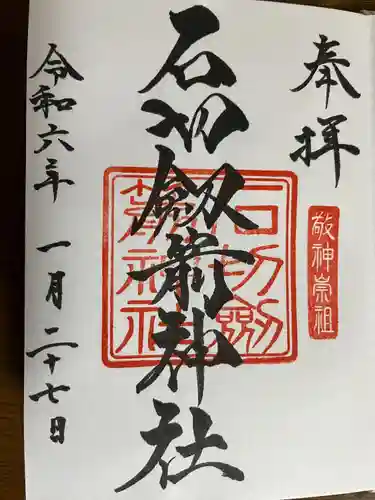 奉拝
敬神崇祖
石切劔箭神社
石切劔箭神社
令和六年 一月二十七日